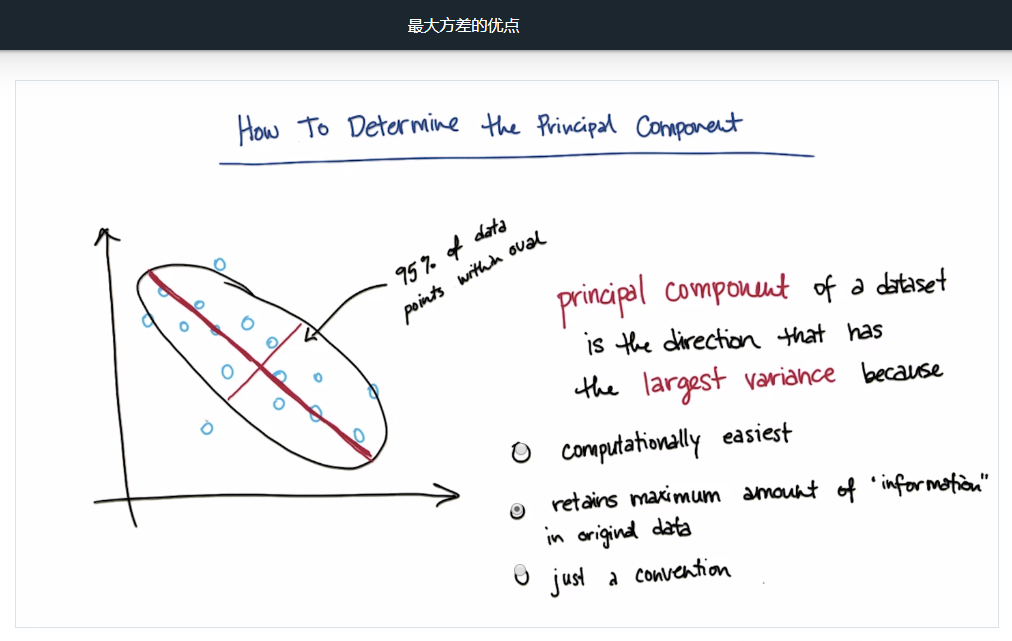 最大方差的优点
How To Determine the Principal Component
95% of data
points within oval
principal component of a dataset
is the direction that has
the largest variance because
computationally easiest
retains maximum amount of "information"
in original data
just a convention